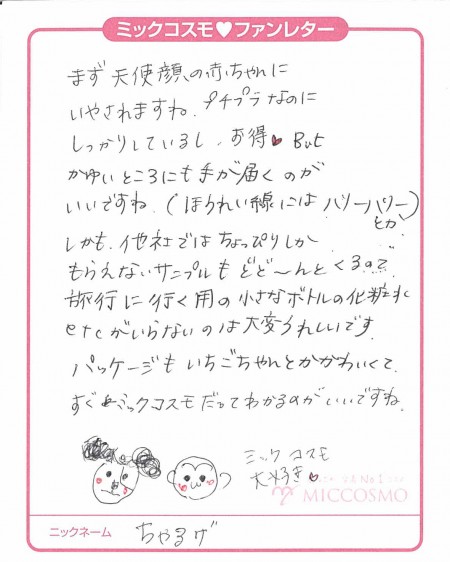 ミックコスモ♥ファンレター
まず天使顔の赤ちゃんに
いやされますね。プチプラなのに
しっかりしているし、お得♥ But
かゆいところにも手が届くのが
いいですね。(ほうれい線にはハリーハリー)とか
しかも、他社ではちょっぴりしか
もらえないサンプルもどど〜んとくるので
旅行に行く用の小さなボトルの化粧水
etcがいらないのは大変うれしいです。
パッケージもいちごちゃんとかかわいくて、
すぐミックコスモだってわかるのがいいですね。
ミックコスモ
大好き♥
No.1
MICCOSMO
ニックネーム ちゃるげ